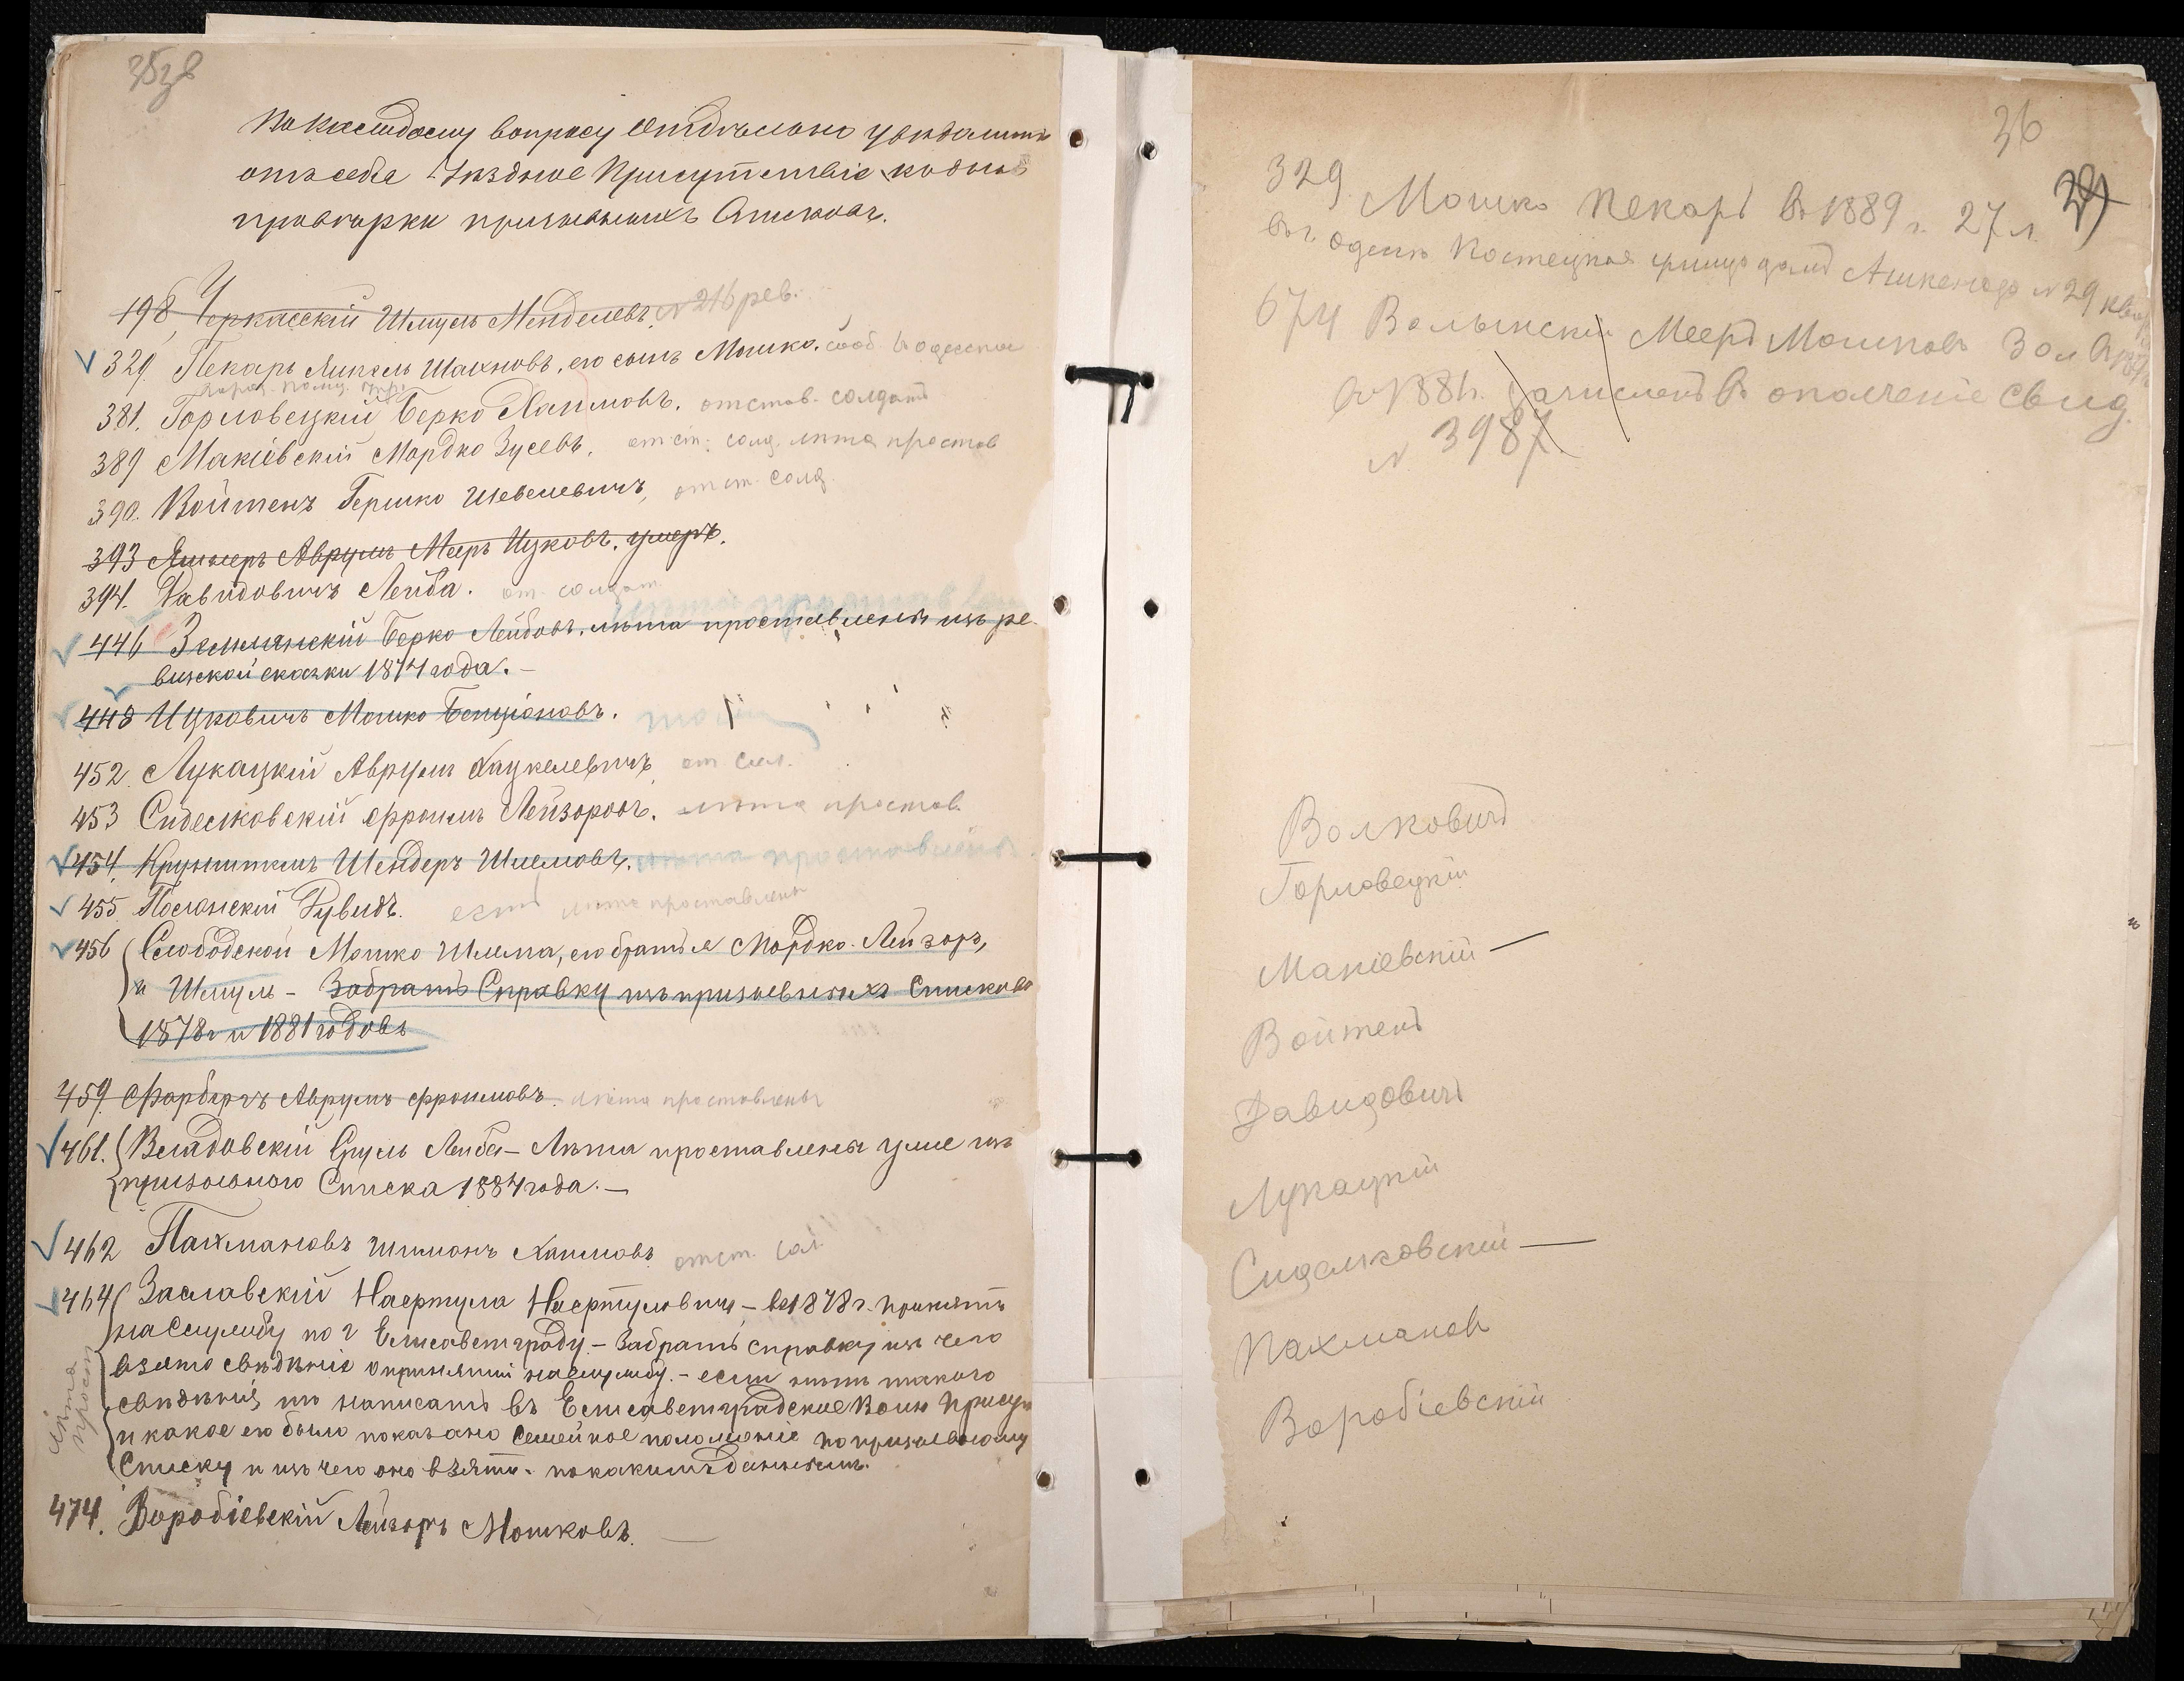 35 об
По каждому вопросу отдѣльно увѣдомить
отъ себя Уѣздное Присутствіе
провѣрки призывныхъ Списковъ.
198 Черкасскій Шмуль Менделевъ. № 216 рев.
329. Пекарь Янкель Шахновъ, его сынъ Мошко.
381. Горловецкій Берко Хаимовъ. отстав. солдатъ
389 Макіевскій Мордко Зусевъ. отст. солд. лѣта простав
390. Войтенъ Гершко Шевелевичъ, отст. солд
393 Аврумъ Мееръ Ицковъ. умеръ.
394. Давидовичъ Лейба. от. солдат.
446 Землянскій Берко Лейбовъ. лѣта проставлены изъ ре-
визской сказки 1874 года. —
448 Ицковичъ Мошко Бенціоновъ.
452. Лукацкій Аврумъ Хацкелевичъ от сол.
453 Сидельковскій Фроимъ Лейзоровъ. лѣта простав.
454. Шендеръ Шлемовъ. лѣта проставлены
455. Полонскій Дувидъ. есть лѣта проставлены
456 Слободской Мошко Шлема, его братья Мордко Лейзоръ,
и Шмуль — Забрать Справку изъ призывныхъ Списковъ
1878 г и 1881 годовъ
459. Фарберъ Аврумъ Фроимовъ. лѣта проставлены
461. Владовскій Сруль Лейба — Лѣта проставлены уже изъ
призывного Списка 1884 года. —
462 Пахмановъ Шимонъ Хаимовъ отст. сол.
464 Заславскій Нафтула Нафтуловичъ — въ 1878 г. принятъ
на службу по г Елисаветграду — Забрать справку изъ чего
взято свѣдѣніе о принятіи на службу. — если нѣтъ такого
свѣдѣнія, то написать въ Елисаветградское Воин Присут
и какое его было показано Семейное положеніе по призывному
Списку и изъ чего оно взято. по какимъ даннымъ.
лѣта
прост
474. Воробіевскій Лейзоръ Мошковъ. —
36
29
329. Мошко Пекарь въ 1889 г. 27 л.
въ г. Одессѣ Костецкая улица домъ Ашкенази № 29 квар
674 Волынскій Мееръ Мошковъ 30 л
въ 1884 г. зачисленъ въ ополченіе свид.
№ 3987
Волковичъ
Горловецкій
Макіевскій —
Войтенъ
Давидовичъ
Лукацкій
Сидельковскій —
Пахмановъ
Воробіевскій